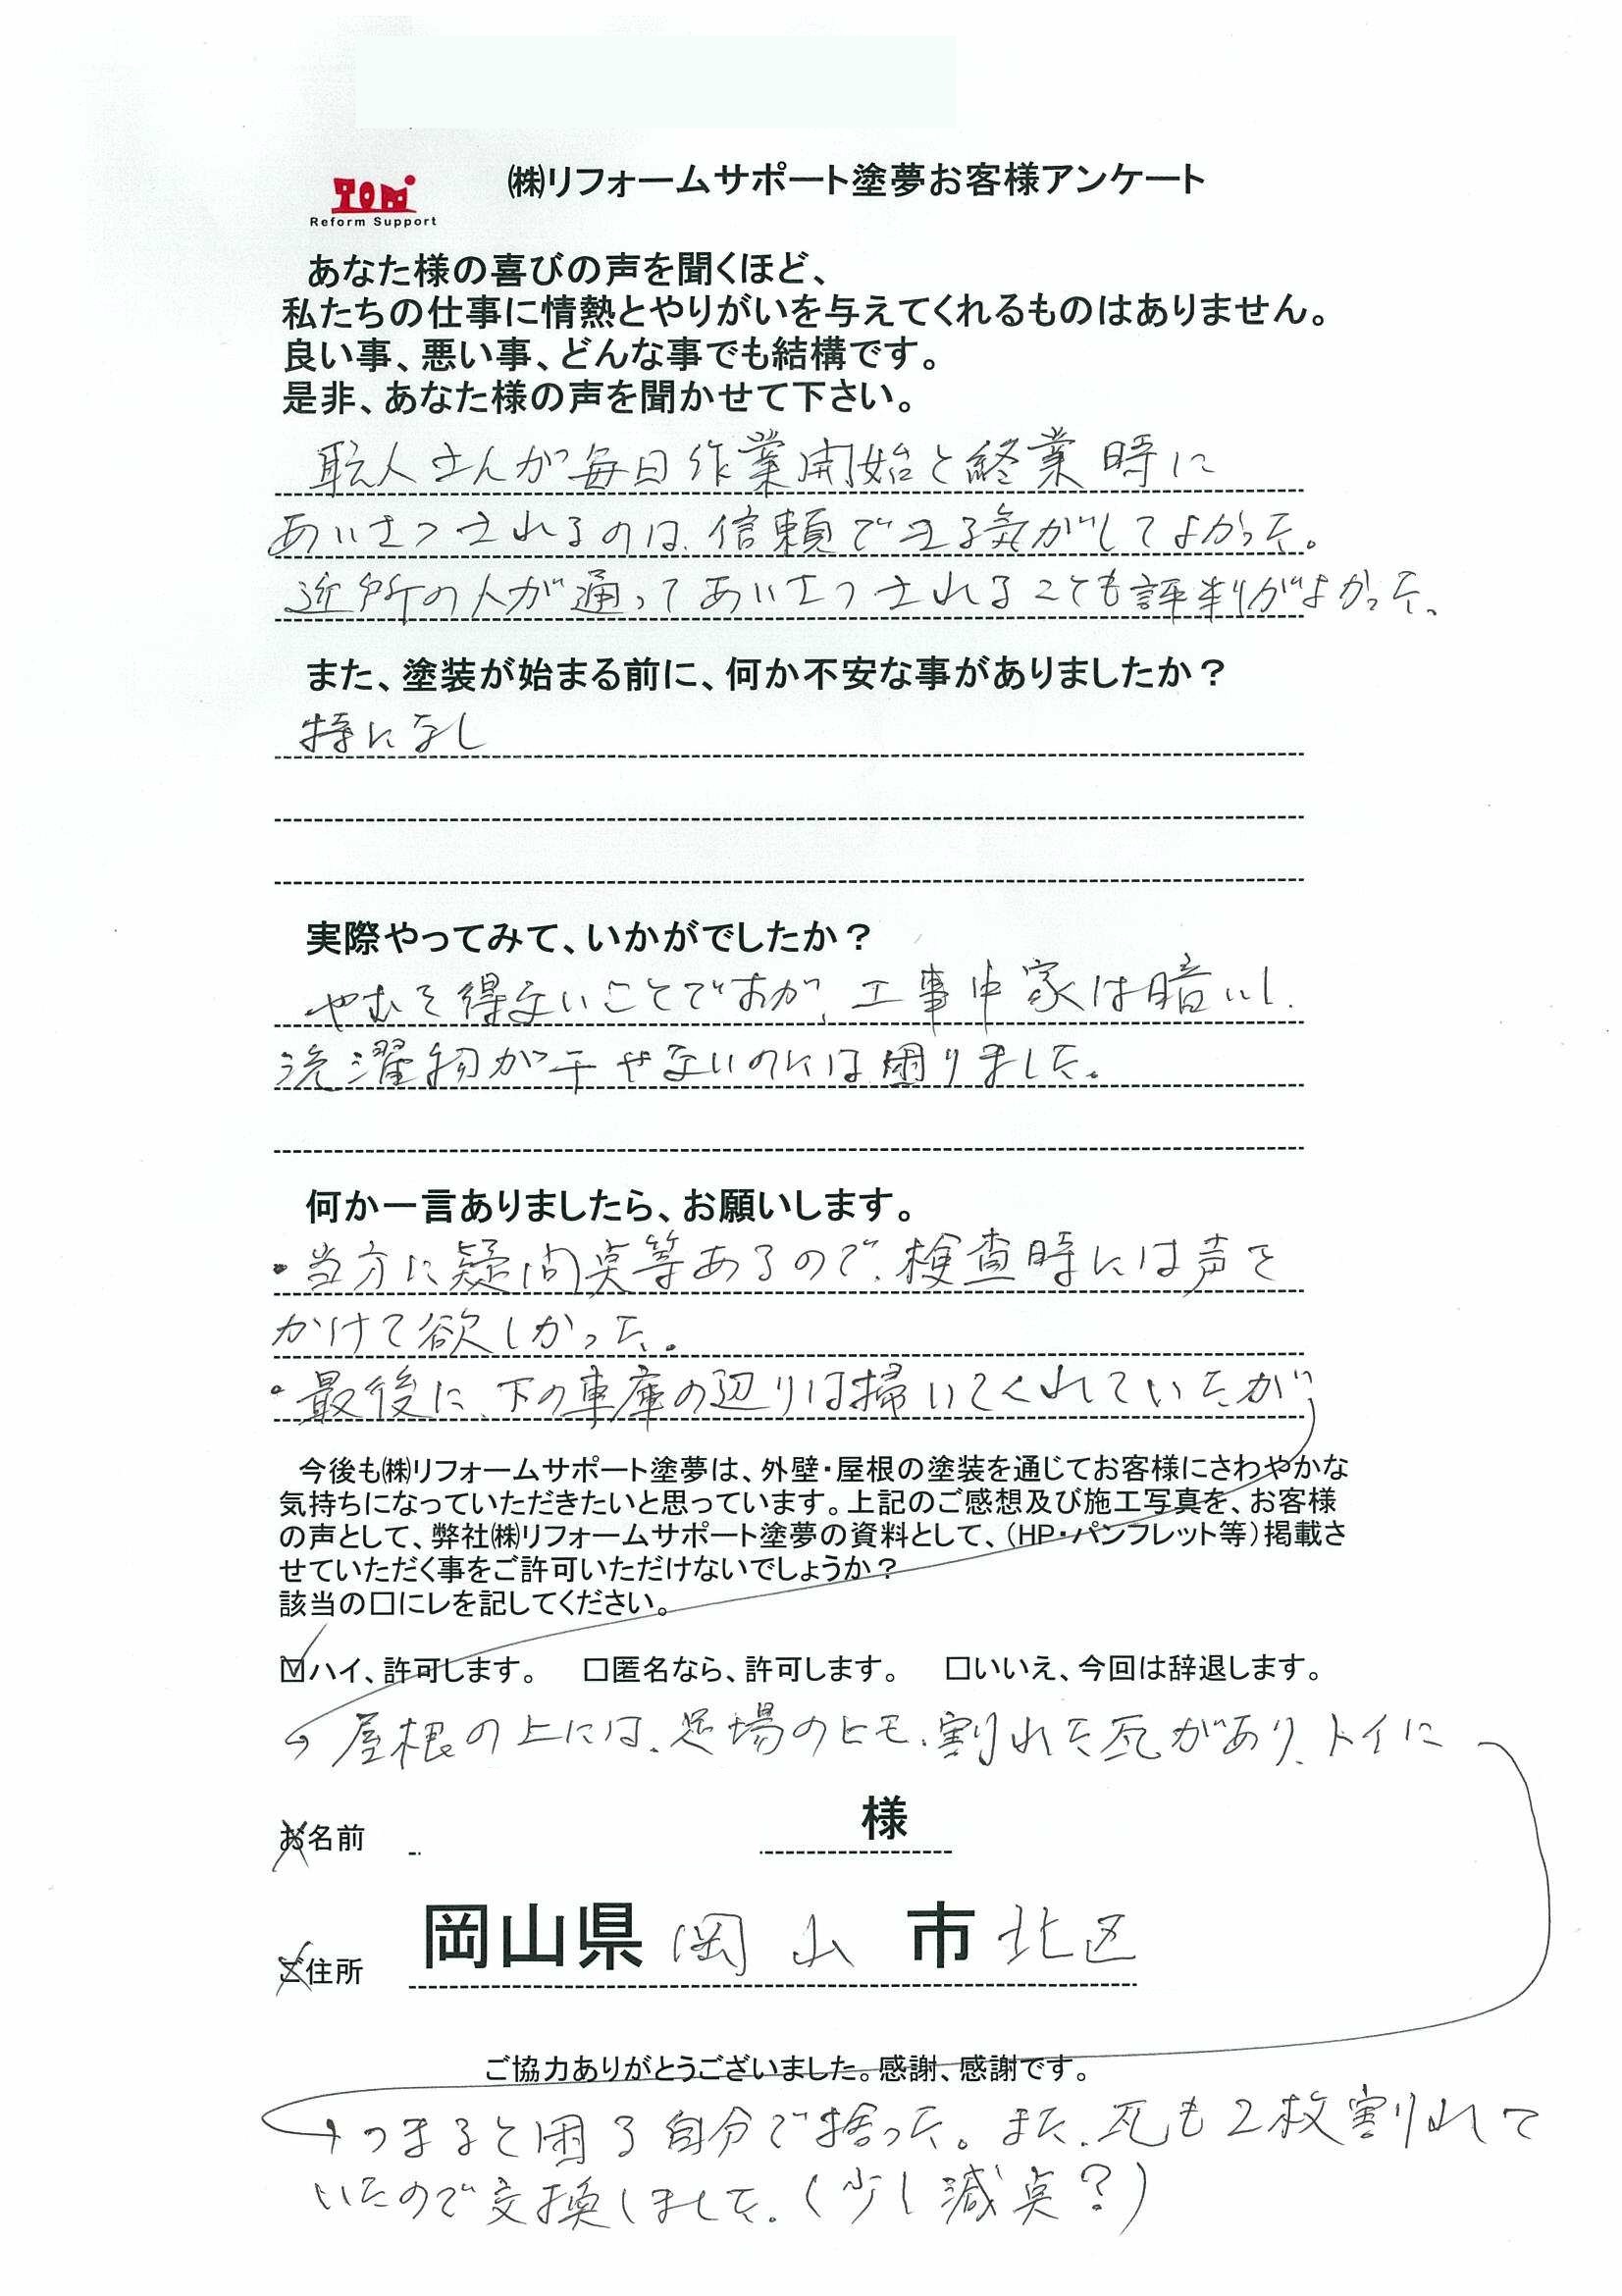 TOM
Reform Support
㈱リフォームサポート塗夢お客様アンケート
あなた様の喜びの声を聞くほど、
私たちの仕事に情熱とやりがいを与えてくれるものはありません。
良い事、悪い事、どんな事でも結構です。
是非、あなた様の声を聞かせて下さい。
職人さんが毎日作業開始と終業時に
あいさつされるのは、信頼できる気がしてよかった。
近所の人が通ってあいさつされることも評判がよかった。
また、塗装が始まる前に、何か不安な事がありましたか？
特になし
実際やってみて、いかがでしたか？
やむを得ないことですが、工事中家は暗いし、
洗濯物が干せないのには困りました。
何か一言ありましたら、お願いします。
・当方に疑問点等あるので、検査時には声を
かけて欲しかった。
・最後に、下の車庫の辺りは掃いてくれていたが
今後も㈱リフォームサポート塗夢は、外壁・屋根の塗装を通じてお客様にさわやかな
気持ちになっていただきたいと思っています。上記のご感想及び施工写真を、お客様
の声として、弊社㈱リフォームサポート塗夢の資料として、（HP・パンフレット等）掲載さ
せていただく事をご許可いただけないでしょうか？
該当の口にレを記してください。
☑ハイ、許可します。 □匿名なら、許可します。 □いいえ、今回は辞退します。
屋根の上には、足場のヒモ、割れた瓦があり、トイに
お名前 様
ご住所 岡山県 岡山 市 北区
ご協力ありがとうございました。感謝、感謝です。
つまると困る自分で捨った。また、瓦も2枚割れて
いたので交換しまして。（少し減点？）